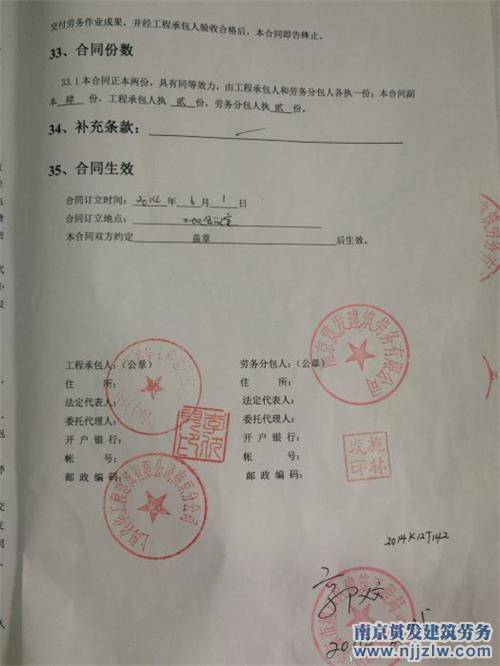 交付劳务作业成果，并经工程承包人验收合格后，本合同即告终止。
33、合同份数
33.1 本合同正本两份，具有同等效力，由工程承包人和劳务分包人各执一份；本合同副
本 肆 份，工程承包人执 贰 份，劳务分包人执 贰 份。
34、补充条款：
35、合同生效
合同订立时间： 2014 年 6 月 1 日
合同订立地点：
本合同双方约定 盖章 后生效。
工程承包人：（公章） 劳务分包人：（公章）
住 所： 住 所：
法定代表人： 法定代表人：
委托代理人： 委托代理人：
开 户 银 行： 开 户 银 行：
帐 号： 帐 号：
邮 政 编 码： 邮 政 编 码：
南京贯发建筑劳务有限公司
施林
发印
南京贯发建筑劳务
www.njjzlw.com